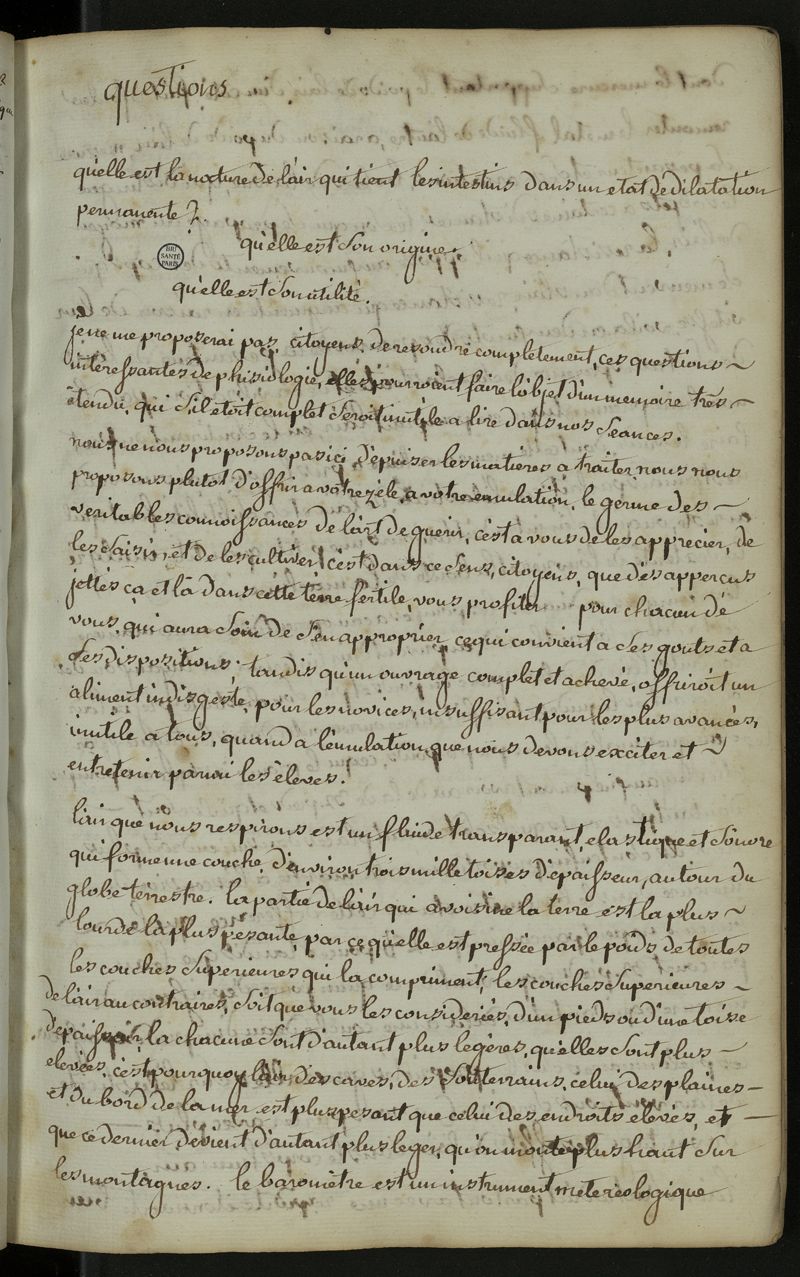 questions
qu'elle est la nature de l'air qui tient les intestins dans un etat de dilatation
permanente ?
qu'elle est son origine.
BIU
SANTÉ
PARIS
qu'elle est son utilité.
je ne me proposerai pas, citoyens, de resoudre complètement, ces questions ~
intéressantes de phisiologie, elles pourroient faire l'objet d'un memoire très ~
étendu, qui s'il étoit complet seroit inutile a lire dans nos seances.
nous ne nous proposons pas ici, d'epuiser les matieres a traiter nous nous
proposons plutot d'offrir a votre zèle, a votre emulation, le germe des ~
veritables connoissances de l'art de guerir, c'est a vous de les apprecier, de
les saisir, et de les cultiver, c'est dans ce sens, citoyens, que des appercus
jettés ça et là dans cette terre fertile, vous profiter pour chacun de
vous, qui aura soin de s'en approprier, ce qui convient a ses gouts et a
ses dispositions; tandis qu'un ouvrage complet et achevé, offriroit un
aliment indisgeste, pour les novices, insuffisant pour les plus avancés,
inutile a tous, quand a l'emulation que nous devons exciter et ~
entretenir parmi les élèves.
l'air que nous respirons est un fluide transparant, elastique et sonore
qui forme une couche, d'environ trois mille toises d'epaisseur, autour du
globe terrestre. la partie de l'air qui avoisine la terre est la plus ~
lourde la plus pésante, par ce qu'elle est pressée par le poids de toutes
les couches superieures qui la compriment; les couches superieures ~
de l'air au contraires, soit que vous les consideriés, d'un pieds ou d'une toise
d'epaisseur la chacune sont d'autant plus legères, qu'elles sont plus ~
elevées, c'est pourquoy l'air des caves, des souterrains, celui des plaines ~
et du bord de la mer est plus pesant que celui des endroits élevés, et —
que ce dernier devient d'autant plus leger, qu'on monte plus haut sur
les montagnes. le baromètre est un instrument metereologique